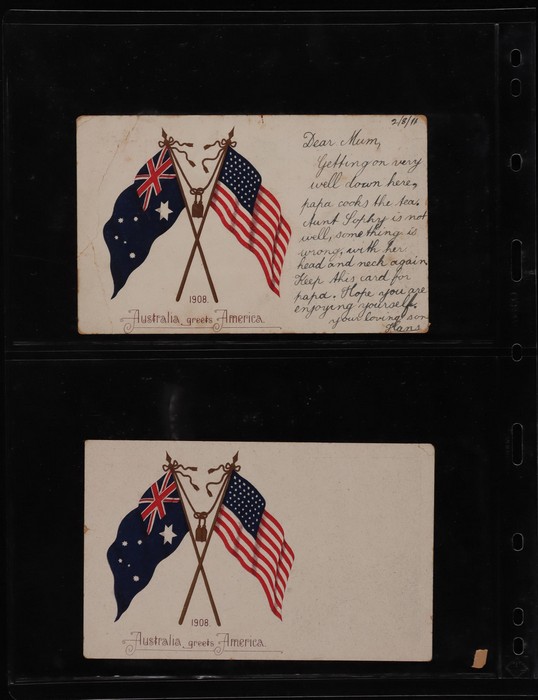 2/8/11
Dear Mum,
Getting on very
well down here,
papa cooks the tea.
Aunt Sophy is not
well, something is
wrong, with her
head and neck again
Keep this card for
papa. Hope you are
enjoying yourself.
your loving son
Hans
1908.
Australia greets America.
1908
Australia greets America.